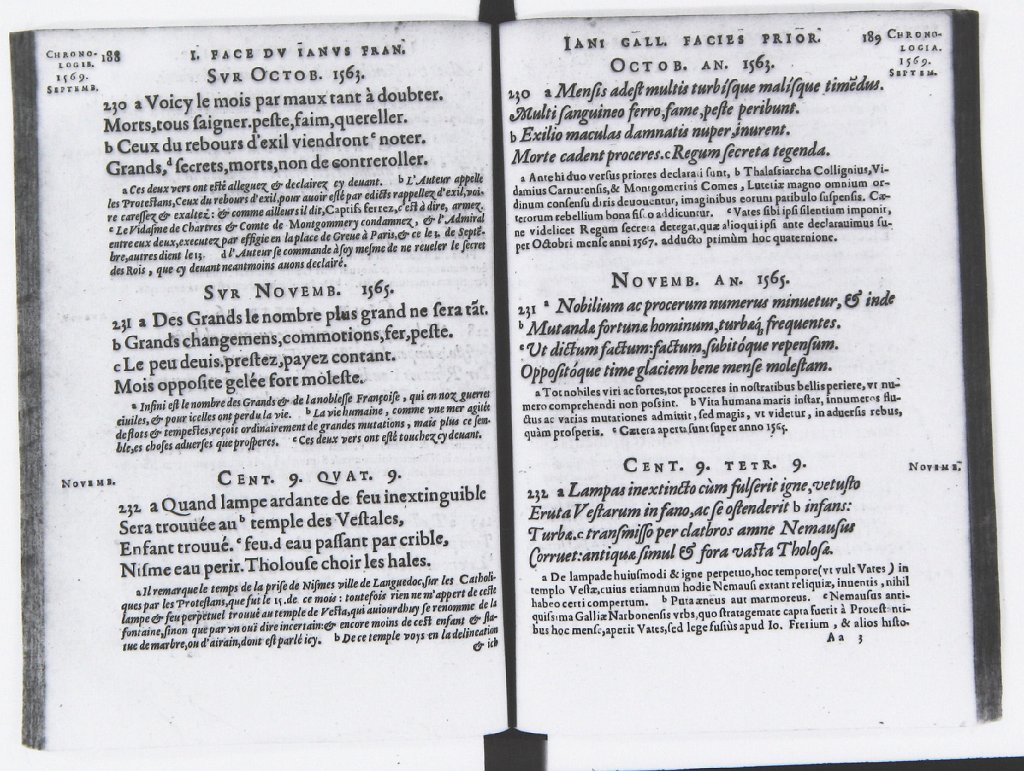 CHRONO-
LOGIE.
1569.
SEPTEMB.
188
I. FACE DV IANVS FRAN.
SVR OCTOB. 1563.
230 a Voicy le mois par maux tant à doubter.
Morts, tous saigner. peste, faim, quereller.
b Ceux du rebours d'exil viendront c noter.
Grands, d secrets, morts, non de contreroller.
a Ces deux vers ont esté alleguez & declairez cy deuant. b L'Auteur appelle
les Protestans, Ceux du rebours d'exil, pour auoir esté par edicts rappellez d'exil, voi-
re caressez & exaltez: & comme ailleurs il dit, Captifs ferrez, c'est à dire, armez.
c Le Vidasme de Chartres & Comte de Montgommery condamnez, & l'Admiral
entre eux deux, executez par effigie en la place de Greue à Paris, & ce le 3. de Septẽ-
bre, autres dient le 13. d l'Auteur se commande à soy mesme de ne reueler le secret
des Rois, que cy deuant neantmoins auons declairé.
SVR NOVEMB. 1565.
231 a Des Grands le nombre plus grand ne sera tãt.
b Grands changemens, commotions, fer, peste.
c Le peu deuis. prestez, payez contant.
Mois opposite gelée fort moleste.
a Infini est le nombre des Grands & de la noblesse Françoise, qui en noz guerres
ciuiles, & pour icelles ont perdu la vie. b La vie humaine, comme vne mer agitée
de flots & tempestes, reçoit ordinairement de grandes mutations, mais plus ce sem-
ble, es choses aduerses que prosperes. c Ces deux vers ont esté touchez cy deuant.
NOVEMB.
CENT. 9. QVAT. 9.
232 a Quand lampe ardante de feu inextinguible
Sera trouuée au b temple des Vestales,
Enfant trouué. c feu. d eau passant par crible,
Nisme eau perir. Tholouse choir les hales.
a Il remarque le temps de la prise de Nismes ville de Languedoc, sur les Catholi-
ques par les Protestans, que fut le 15. de ce mois: toutefois rien ne m'appert de ceste
lampe & feu perpetuel trouué au temple de Vesta, qui auiourdhuy se renomme de la
fontaine, sinon que par vn ouï dire incertain: & encore moins de cest enfant & sta-
tue de marbre, ou d'airain, dont est parlé icy. b De ce temple voys en la delineation
& icb
IANI GALL. FACIES PRIOR.
189
CHRONO-
LOGIA.
1569.
SEPTEM.
OCTOB. AN. 1563.
230 a Mensis adest multis turbísque malísque timẽdus.
Multi sanguineo ferro, fame, peste peribunt.
b Exilio maculas damnatis nuper, inurent.
Morte cadent proceres. c Regum secreta tegenda.
a Ante hi duo versus priores declarati sunt, b Thalassiarcha Collignius, Vi-
damius Carnutensis, & Montgomerius Comes, Lutetiæ magno omnium or-
dinum consensu diris deuouentur, imaginibus eorum patibulo suspensis. Cæ-
terorum rebellium bona fisco addicuntur. c Vates sibi ipsi silentium imponit,
ne videlicet Regum secreta detegat, quæ alioqui ipsi ante declarauimus su-
per Octobri mense anni 1567. adducto primùm hoc quaternione.
NOVEMB. AN. 1565.
231 a Nobilium ac procerum numerus minuetur, & inde
b Mutandæ fortunæ hominum, turbæq́; frequentes.
c Vt dictum factum: factum, subitóque repensum.
Oppositóque time glaciem bene mense molestam.
a Tot nobiles viri ac fortes, tot proceres in nostratibus bellis periere, vt nu-
mero comprehendi non possint. b Vita humana maris instar, innumeros flu-
ctus ac varias mutationes admittit, sed magis, vt videtur, in aduersis rebus,
quàm prosperis. c Cætera aperta sunt super anno 1565.
CENT. 9. TETR. 9.
NOVEMB.
232 a Lampas inextincto cùm fulserit igne, vetusto
Eruta Vestarum in fano, ac se ostenderit b infans:
Turbæ. c transmisso per clathros amne Nemausus
Corruet: antiquæ simul & fora vasta Tholosæ.
a De lampade huiusmodi & igne perpetuo, hoc tempore (vt vult Vates) in
templo Vestæ, cuius etiamnum hodie Nemausi extant reliquiæ, inuentis, nihil
habeo certi compertum. b Puta æneus aut marmoreus. c Nemausus anti-
quissima Galliæ Narbonensis vrbs, quo stratagemate capta fuerit à Protestanti-
bus hoc mense, aperit Vates, sed lege fusiùs apud Io. Frerium, & alios histo-
Aa 3